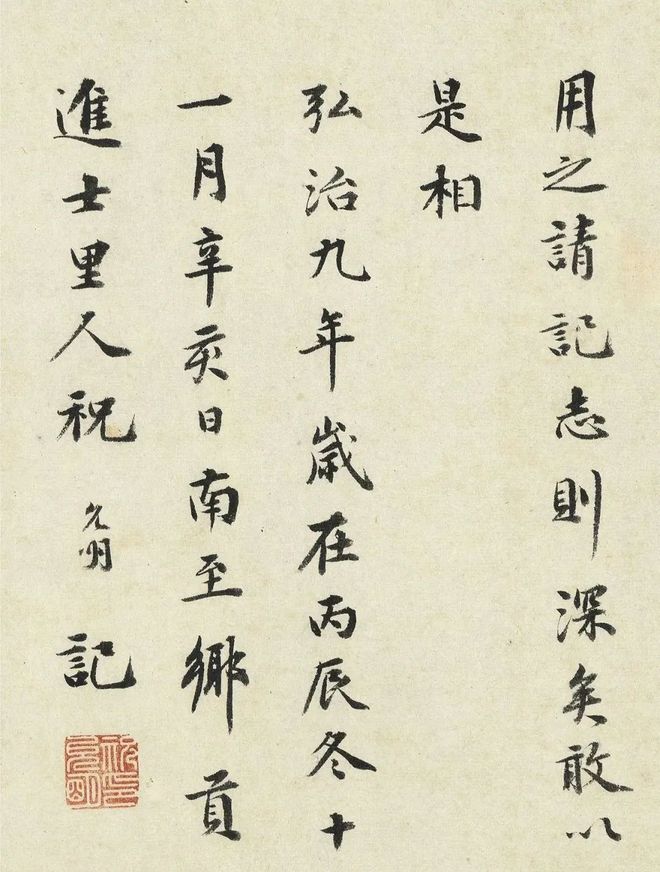 用之請記志則深矣敢以
是相
弘治九年歲在丙辰冬十
一月辛亥日南至鄉貢
進士里人祝允明記
祝印允明